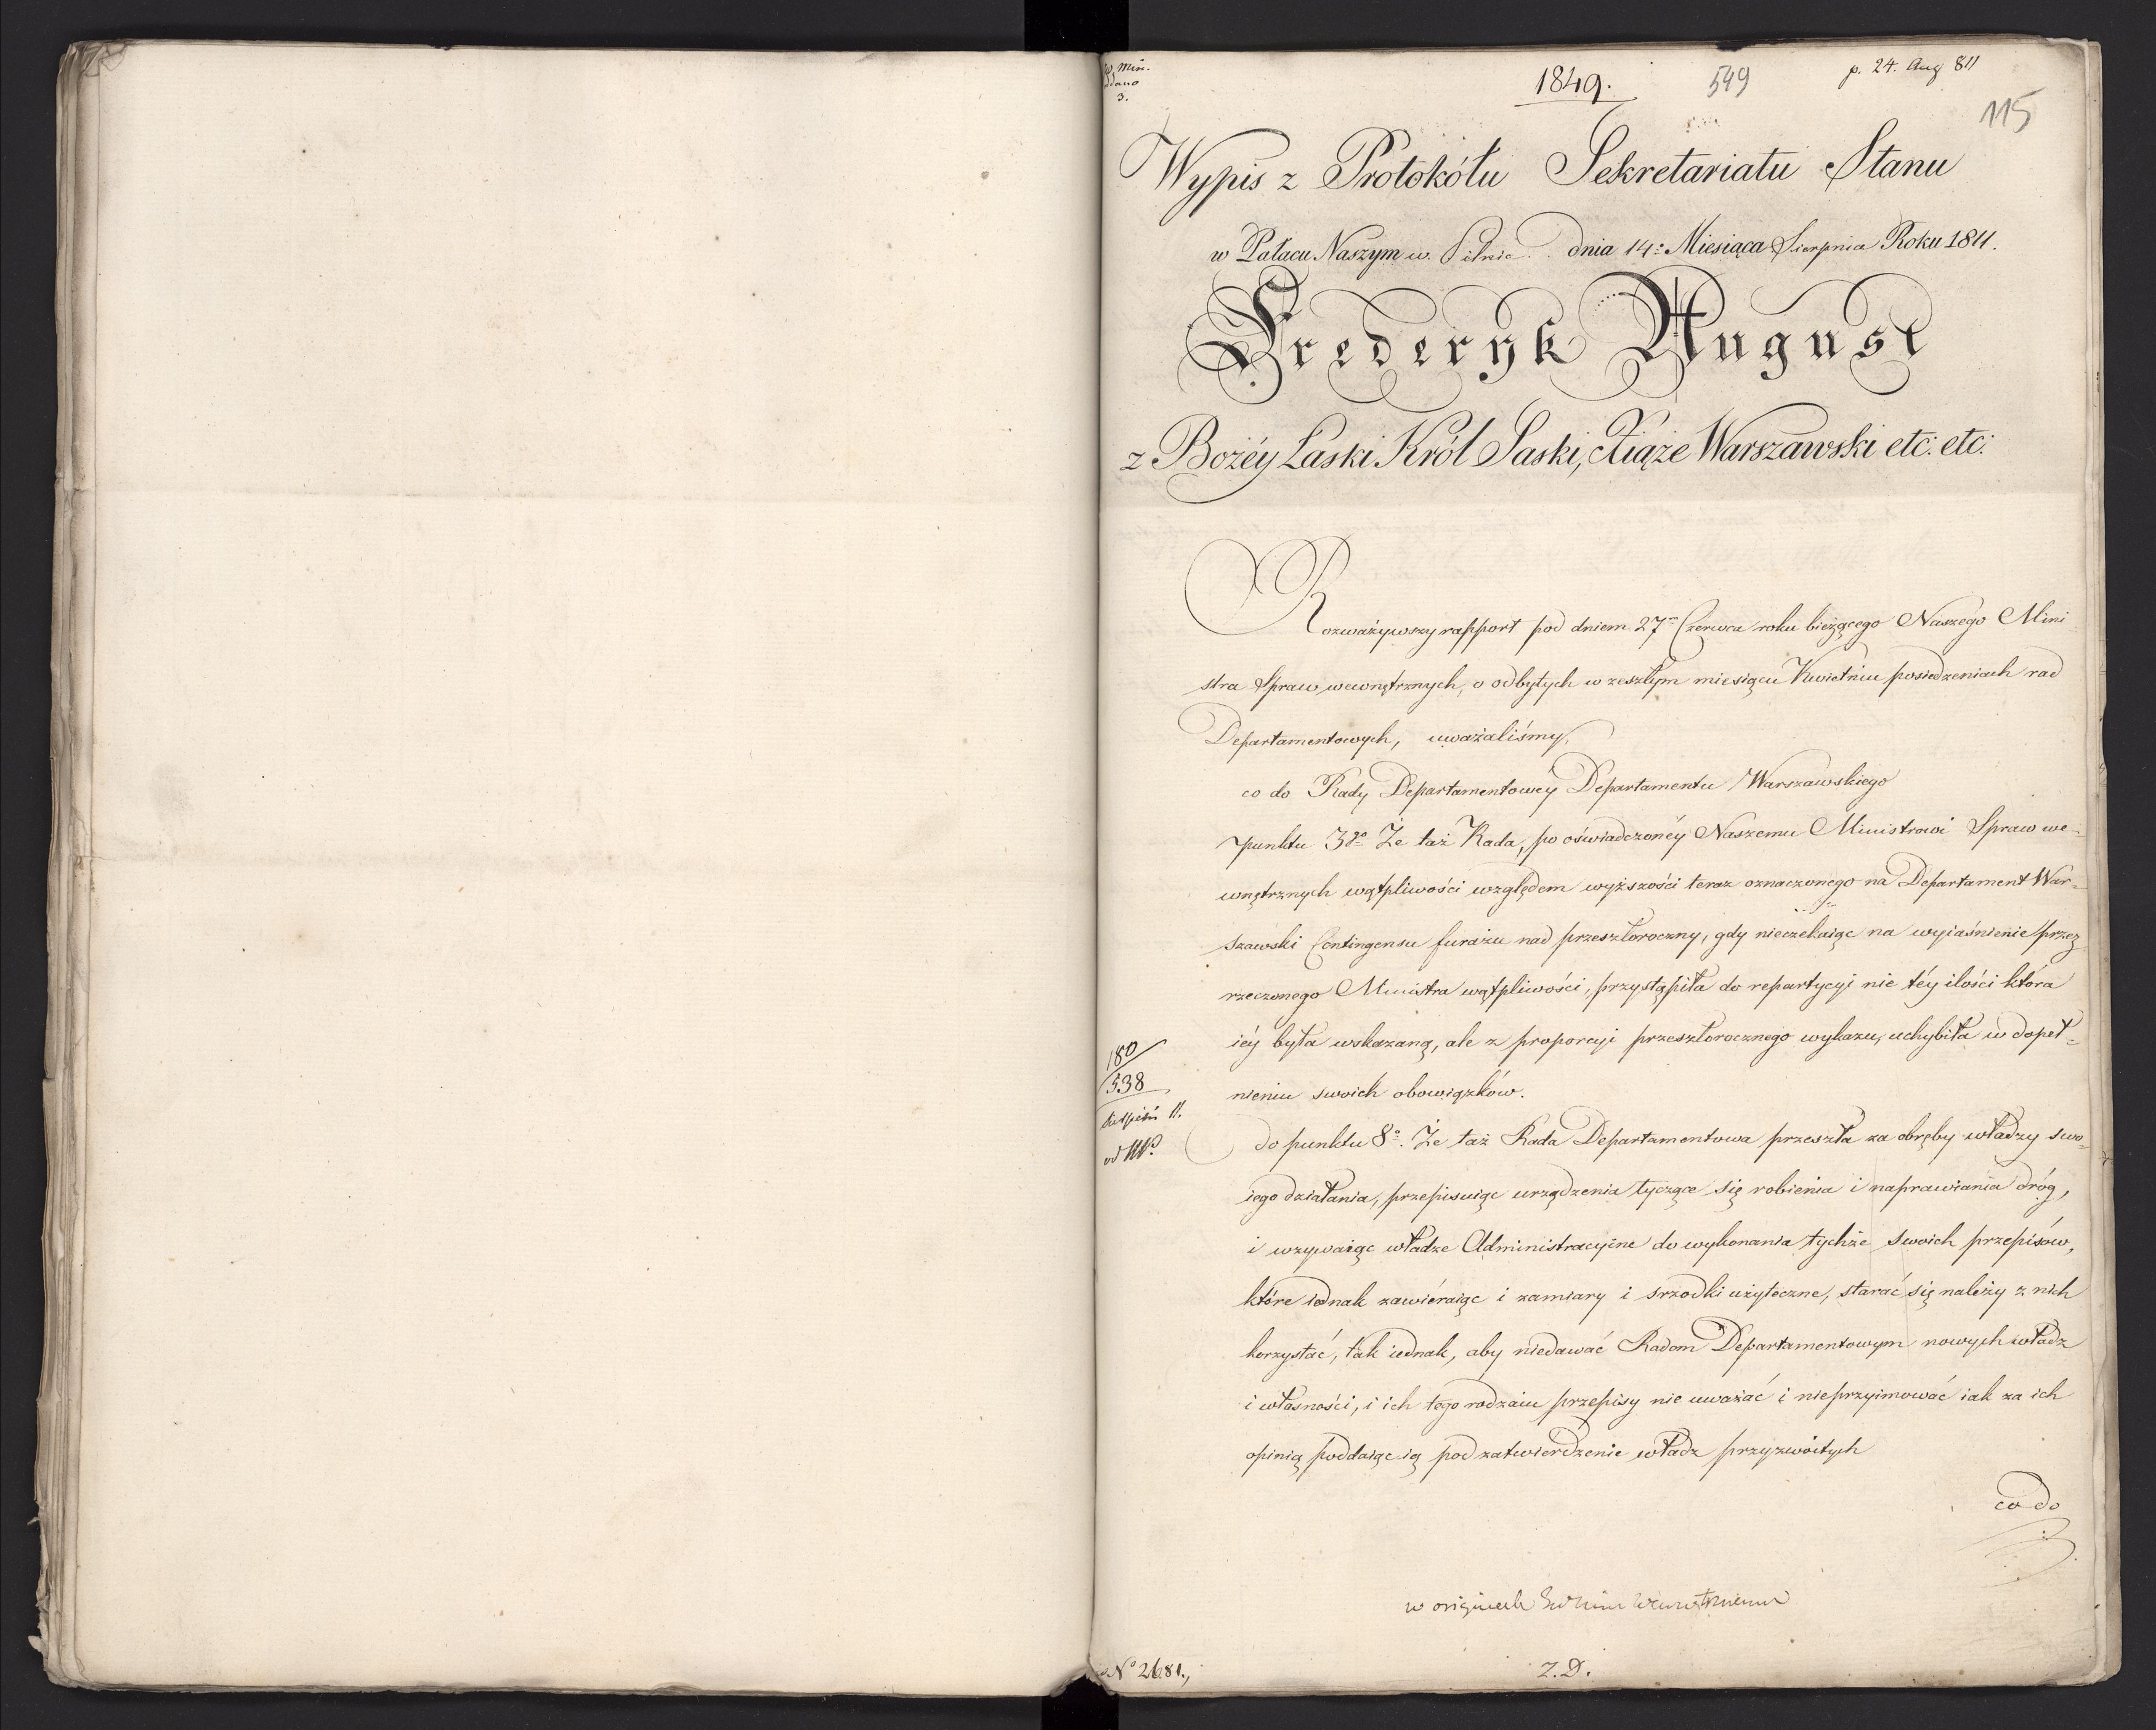 Min.
3.
1849.
549
p. 24. Aug 811
115
Wypis z Protokółu Sekretariatu Stanu
w Pałacu Naszym w Pilnic dnia 14: Miesiąca Sierpnia Roku 1811.
Frederyk August
z Bożéy Łaski Król Saski, Xiąże Warszawski etc: etc:
Rozważywszy rapport pod dniem 27m Czerwca roku bieżącego Naszego Mini
stra Spraw wewnętrznych, o odbytych w zeszłym miesiącu Kwietniu posiedzeniach rad
Departamentowych, uważaliśmy,
co do Rady Departamentowéy Departamentu Warszawskiego
punktu 3go Że taż Rada, po oświadczonéy Naszemu Ministrowi Spraw we-
wnętrznych wątpliwości względem wyższości teraz oznaczonego na Departament War=
szawski Contingensu furażu nad przeszłoroczny, gdy nieczekaiąc na wyiaśnienie przez
rzeczonego Ministra wątpliwości, przystąpiła do repartycyi nie téy ilości która
iéy była wskazaną, ale z proporcyi przeszłorocznego wykazu, uchybiła w dopeł=
nieniu swoich obowiązków.
180
538
11.
do punktu 8o. Że taż Rada Departamentowa przeszła za obręby władzy swo=
iego działania, przepisuiąc urządzenia tyczące się robienia i naprawiania dróg,
i wzywaiąc władze Administracyine do wykonania tychże swoich przepisów,
które iednak zawiéraiąc i zamiary i srzodki użyteczne, starać się należy z nich
korzystać, tak iednak, aby niedawać Radom Departamentowym nowych władz
i własności, i ich tego rodzaiu przepisy nie uważać i nieprzyimować iak za ich
opinią poddaiąc ią pod zatwierdzenie władz przyzwoitych
co do
w originale
No 2681.,
Z.D.